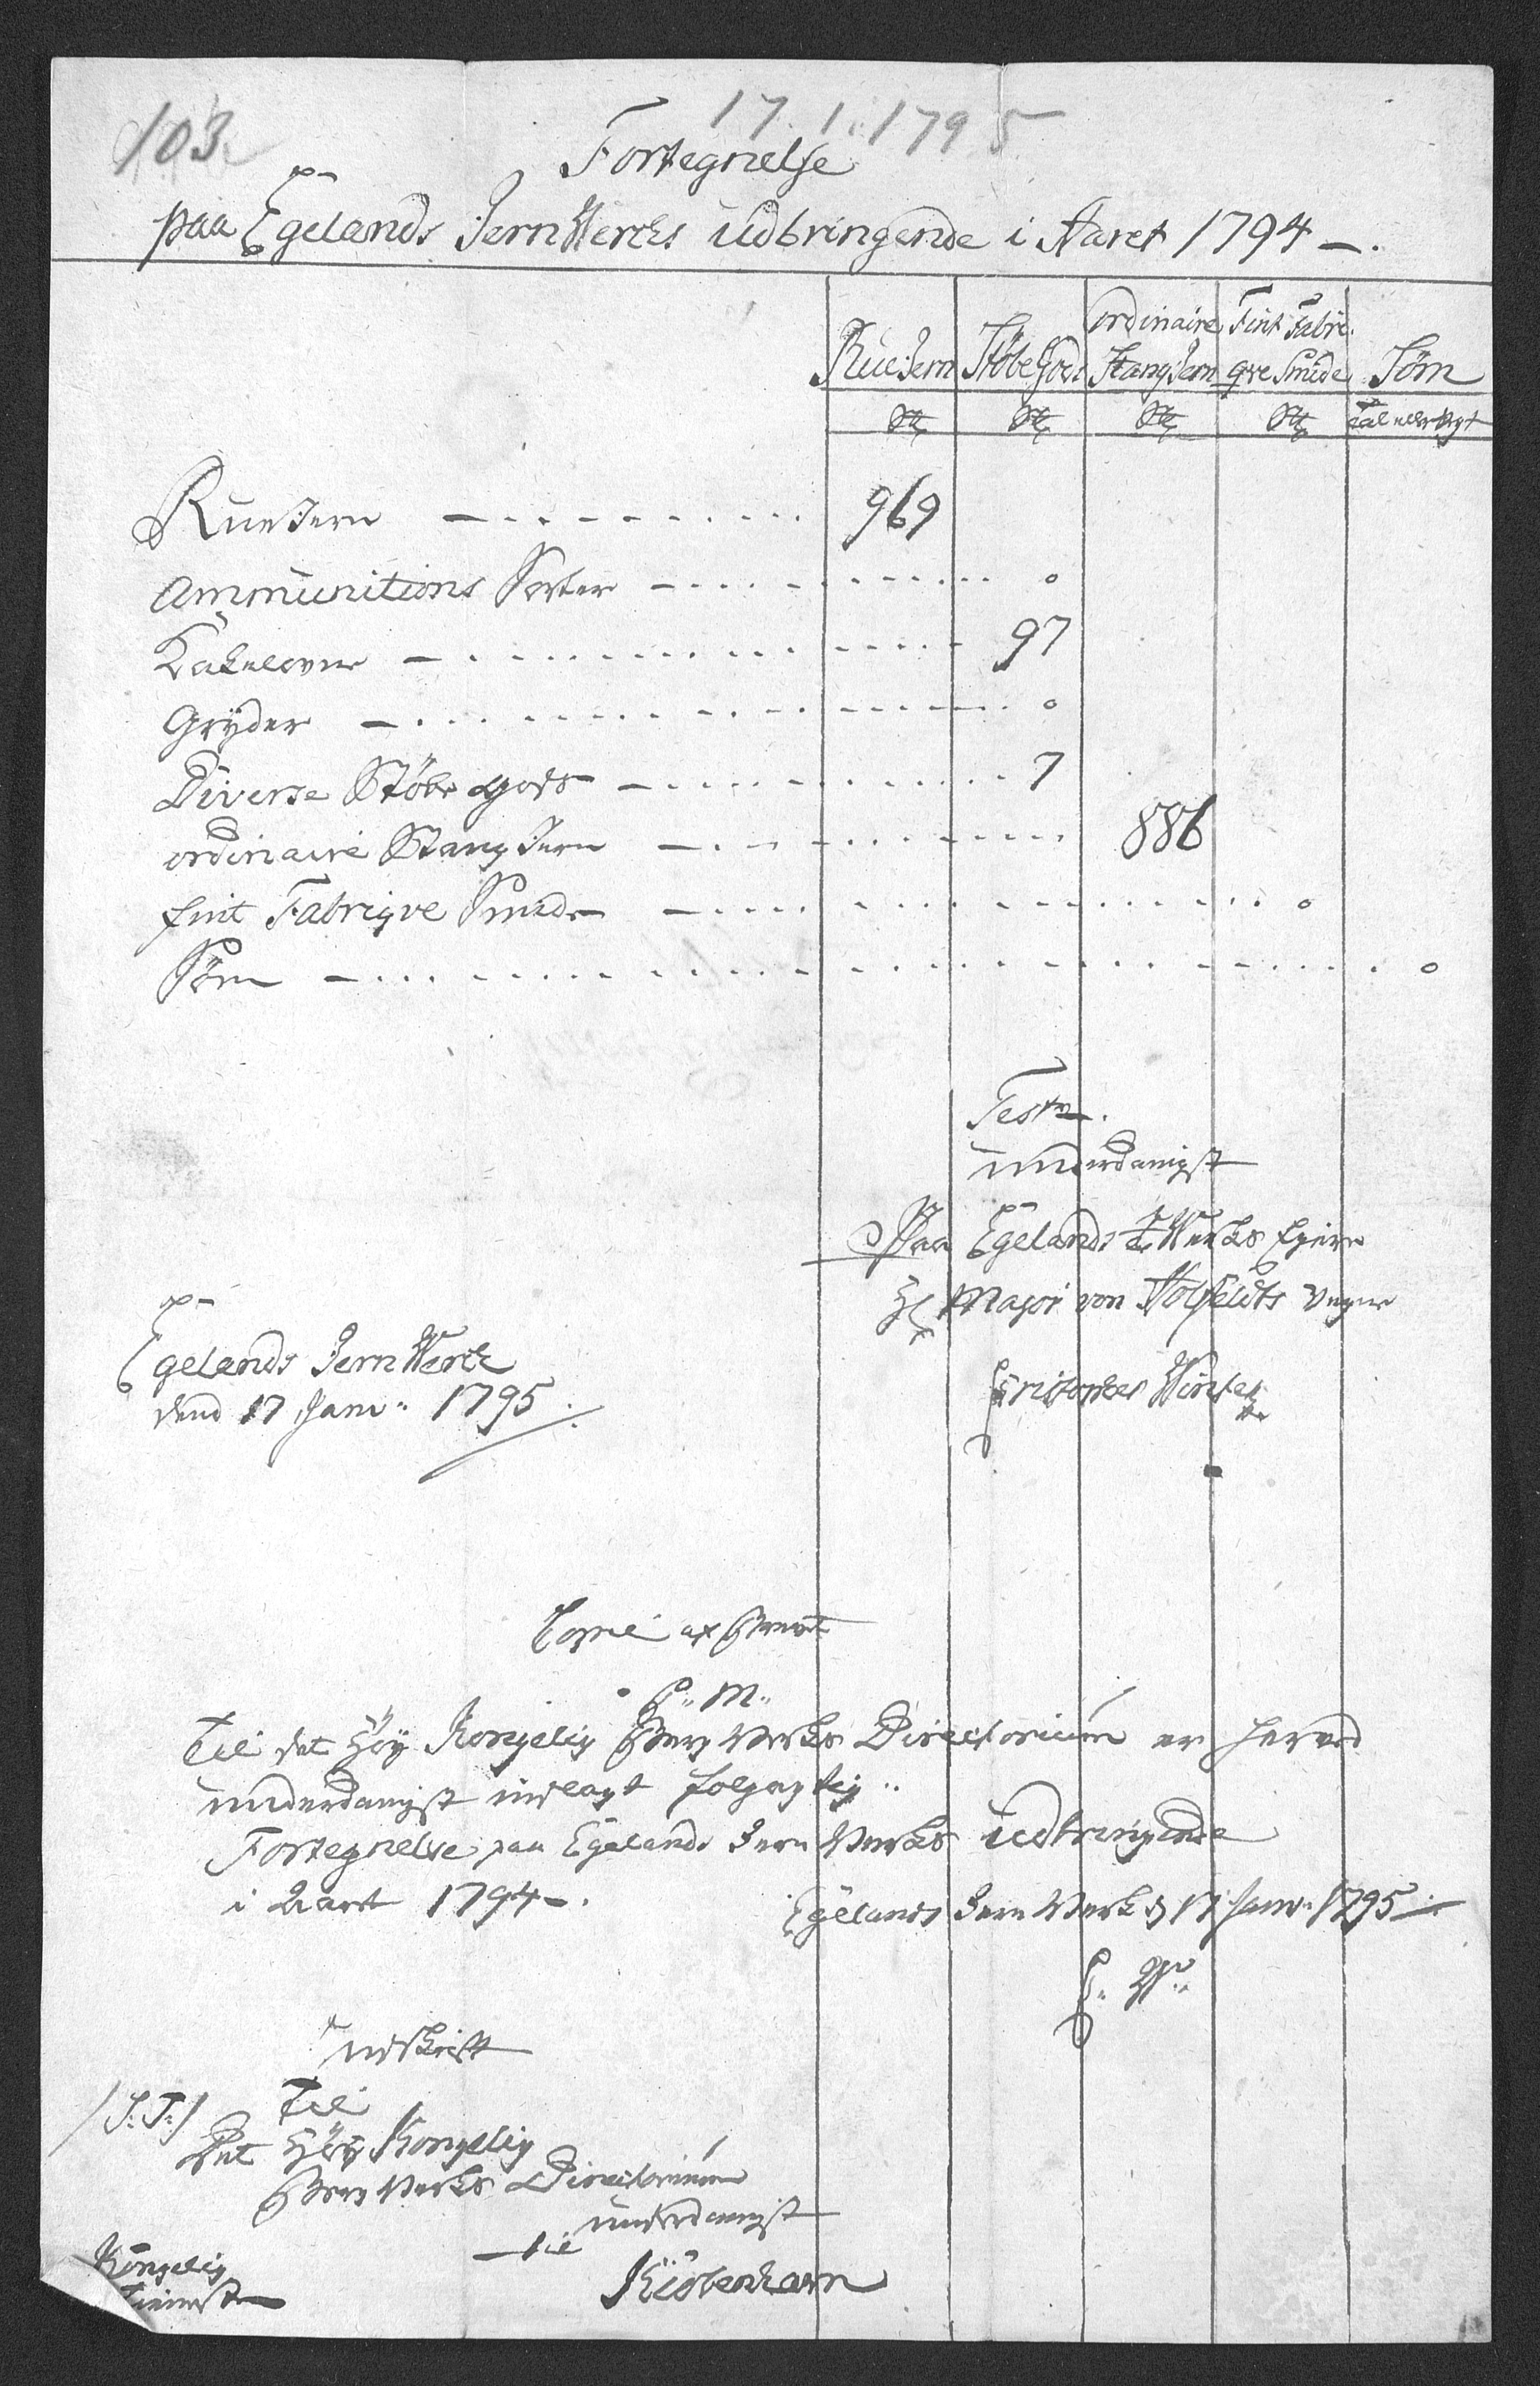 103
17. 1. 1795
Fortegnelse
paa Egelands Jern Wercks udbringende i Aaret 1794 –.
Rue Jern | Støbe Gods | ordinaire Stang Jern | Fint Fabriqve Smide | Söm
Sk℔ | Sk℔ | Sk℔ | Sk℔ | Tal eller Vegt
Rue Jern 969
Ammunitions Sorter 0
Kakelovne 97
Gryder 0
Diverse Støbe Gods 7
ordinaire Stang Jern 886
fint Fabriqve Smide 0
Söm 0
Test
underdanigst
Paa Egelands J. Wercks Eyere
Hr Major von Holfeldts Vegne
Christopher Winter
Egelands Jern Werck
dend 17 Janv: 1795.
Copie af Brevet
P. M.
Til det Høy Kongelig Berg Verks Directorium er herved
underdanigst indlagt følgagtig
Fortegnelse paa Egelands Jern Verks udbringende
i Aaret 1794 –.
Egelands Jern Verk d 17 Janv. 1795
C. W.
Udskrift
/S. T:/ Til
Det Høy Kongelig
Berg Verks Directorium
underdanigst
til
Kiøbenhavn
Kongelig
Tieneste